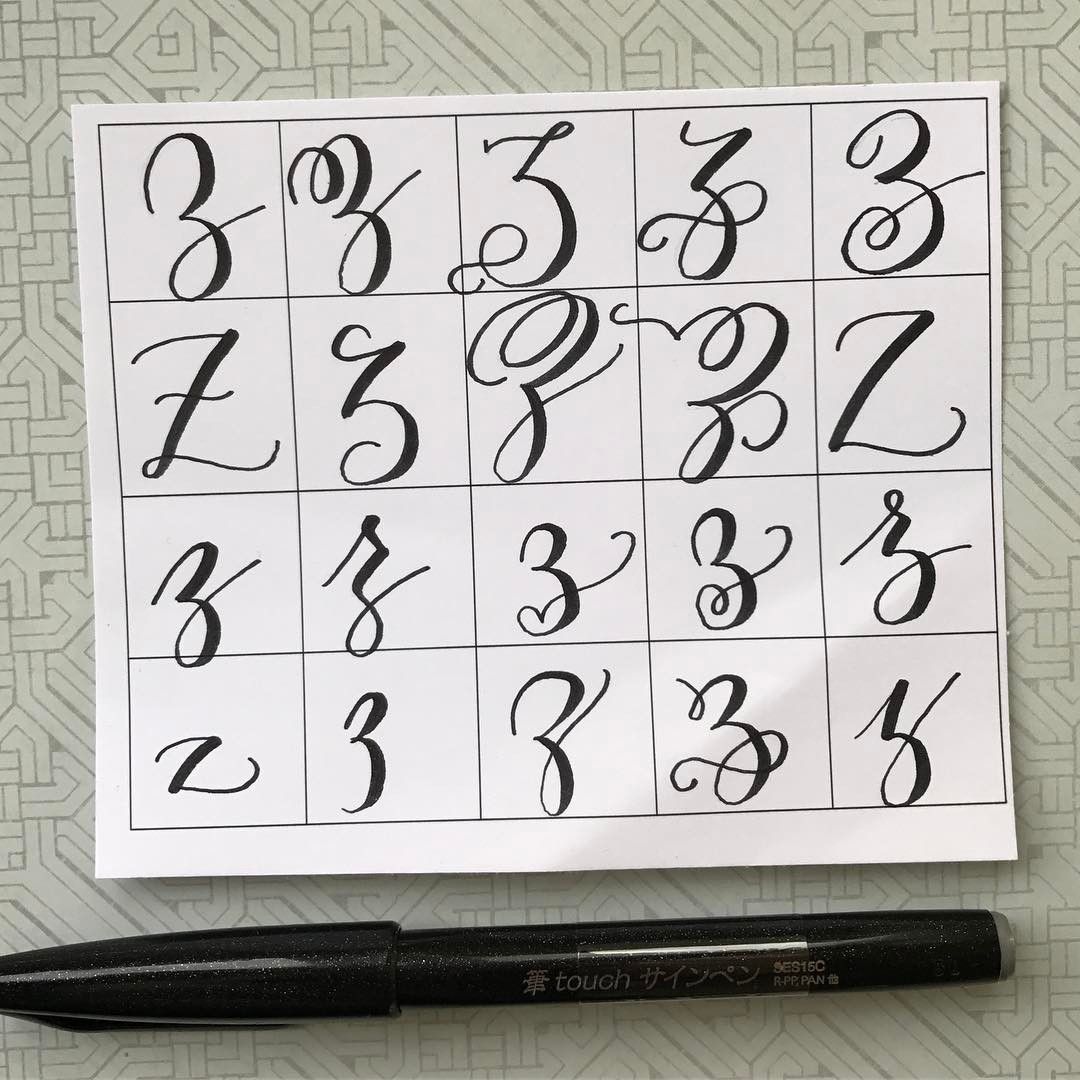 Z Z Z Z Z
Z Z Z Z Z
z z z z z
z z z z z
筆touch サインペン SES15C
R-PP, PAN 他